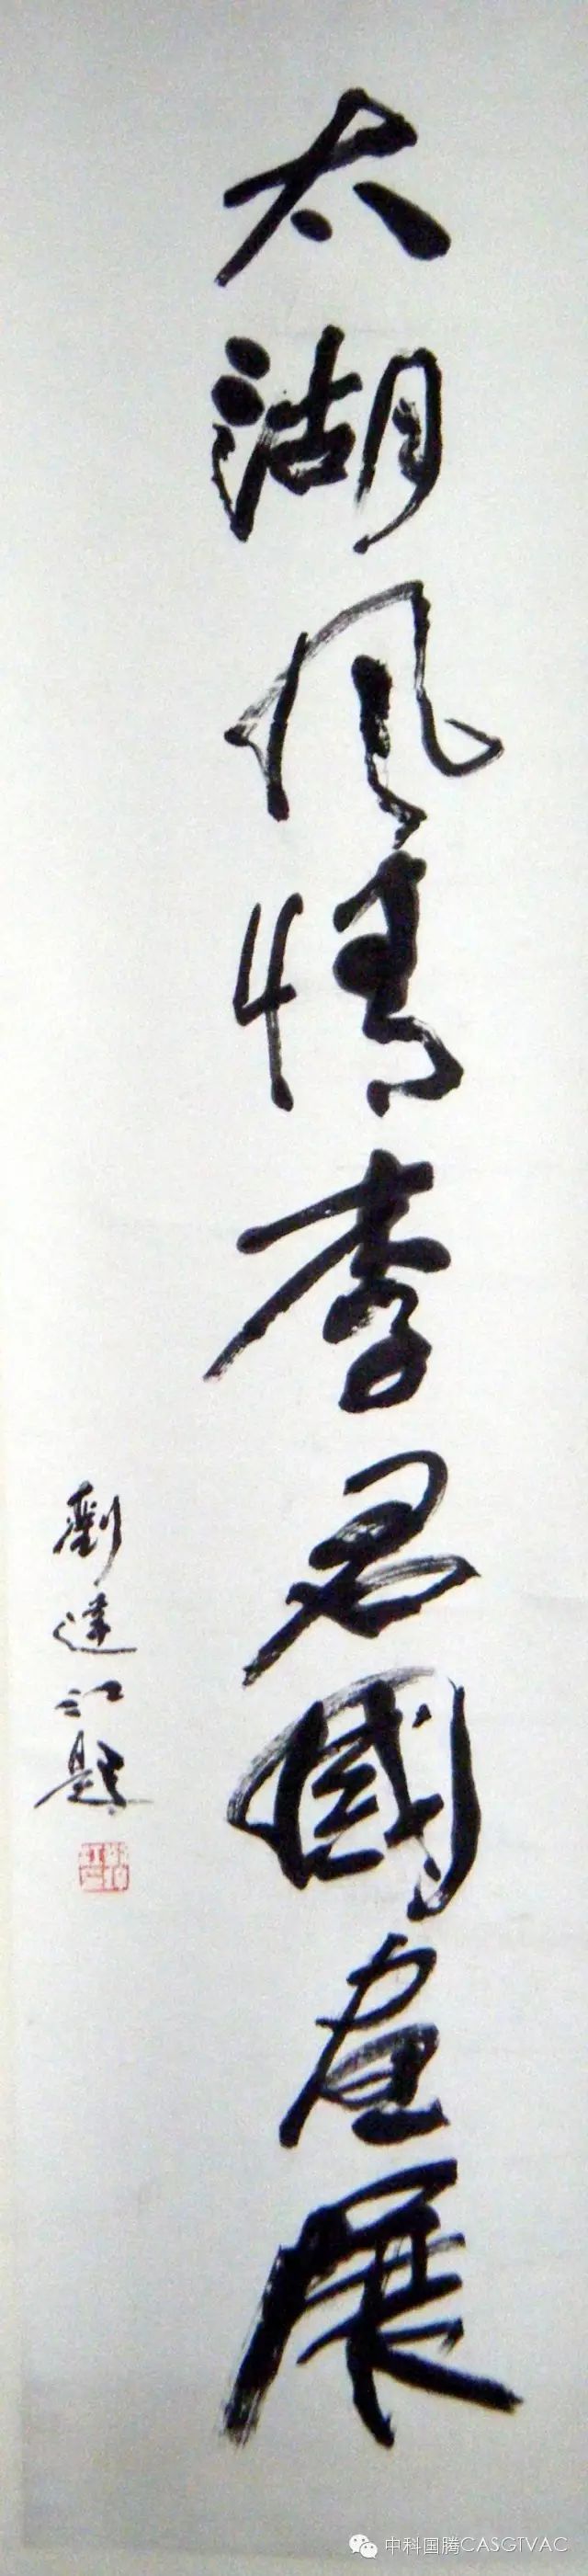 太湖风情李君國画展
劉達江題
中科国腾CASGTVAC